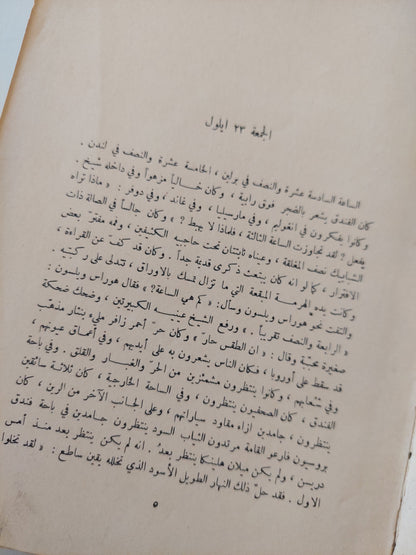 الجمعة ٢٣ ايلول
الساعة السادسة عشرة والنصف في برلين ، الخامسة عشرة والنصف في لندن .
كان الفندق يشعر بالضجر فوق رابية ، وكان خالياً مزهواً وفي داخله شيخ .
وكانوا يفكرون في انغوليم ، وفي مارسيليا ، وفي غاند ، وفي دوفر : « ماذا تراه
يفعل ? لقد تجاوزت الساعة الثالثة ، فلماذا لا يهبط ? » وكان جالساً في الصالة ذات
الشبابيك نصف المغلقة ، وعيناه ثابتتان تحت حاجبيه الكثيفين ، وفمه مفترّ بعض
الافترار ، كما لو انه كان يبتعث ذكرى قديمة جداً . وكان قد كفّ عن القراءة ،
وكانت يده الهرمة المبقعة التي ما تزال تمسك بالاوراق ، تتدلى على ركبتيه .
والتفت نحو هوراس ويلسون وسأل: « كم هي الساعة?» فقال هوراس ويلسون :
« الرابعة والنصف تقريباً . » ورفع الشيخ عينيه الكبيرتين ، وضحك ضحكة
صغيرة محببة وقال : « ان الطقس حار» وكان حرّ أحمر زافر مليء بنثار مذهب
قد سقط على أوروبا ، فكان الناس يشعرون به على أيديهم ، وفي أعماق عيونهم ،
وفي شعابهم ، وكانوا ينتظرون مشمئزين من الحرّ والغبار والقلق . وفي باحة
الفندق ، كان الصحفيون ينتظرون ، وفي الساحة الخارجية ، كان ثلاثة سائقين
ينتظرون ، جامدين ازاء مقاود سياراتهم ، وعلى الجانب الآخر من الرين ، كان
بروسيون فارعو القامة مرتدون الثياب السود ينتظرون جامدين في باحة فندق
دريسن ، ولم يكن ميلان هلينكا ينتظر بعدُ . انه لم يكن ينتظر بعد منذ أمس
الاول . فقد حلّ ذلك النهار الطويل الأسود الذي تخلله يقين ساطع : « لقد تخلوا
٥